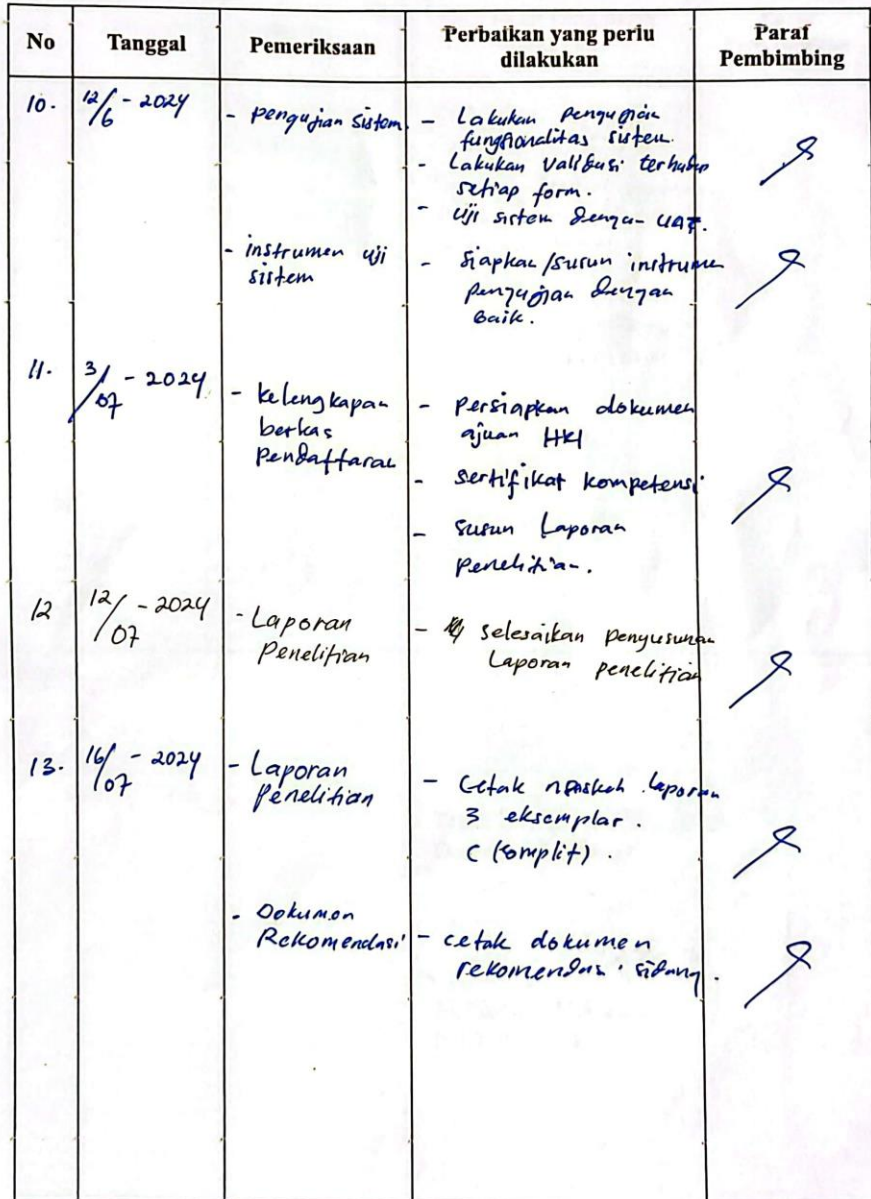 No Tanggal Pemeriksaan Perbaikan yang perlu dilakukan Paraf Pembimbing
10. 12/6 - 2024
- pengujian sistem.
- Lakukan pengujian
fungsionalitas sistem.
- Lakukan validasi terhadap
setiap form.
- uji sistem dengan UAT.
- instrumen uji
sistem
- Siapkan/susun instrumen
pengujian dengan
baik.
11. 3/07 - 2024
- kelengkapan
berkas
Pendaftaran
- persiapkan dokumen
ajuan HKI
- sertifikat kompetensi
- susun Laporan
penelitian.
12 12/07 - 2024
- Laporan
Penelitian
- selesaikan penyusunan
Laporan penelitian
13. 16/07 - 2024
- Laporan
Penelitian
- Cetak naskah laporan
3 eksemplar.
(komplit).
- Dokumen
Rekomendasi
- cetak dokumen
rekomendasi sidang.